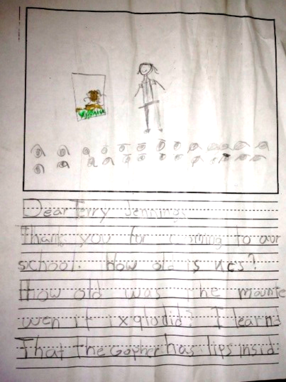 Dear Terry Jennings
Thank you for coming to our
school. How old is
How old was the mounte
wen it ixplodid? I learnd
That The Gopher has lips insid